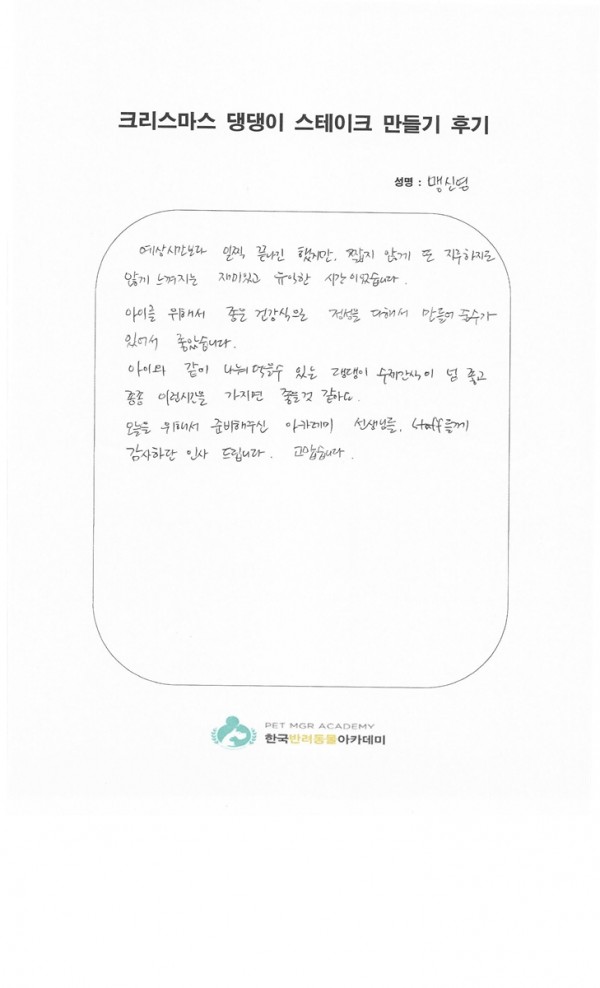 크리스마스 댕댕이 스테이크 만들기 후기
성명 : 맹신영
예상시간보다 일찍 끝나긴 했지만, 짧지 않게 또 지루하지도
않게 느껴지는 재미있고 유익한 시간이었습니다.
아이를 위해서 좋은 건강식을 정성을 다해서 만들어 줄수가
있어서 좋았습니다.
아이와 같이 나눠먹을수 있는 댕댕이 수제간식이 넘 좋고
종종 이런시간을 가지면 좋을것 같아요.
오늘을 위해서 준비해주신 아카데미 선생님들, staff들께
감사하단 인사 드립니다. 고맙습니다.
PET MGR ACADEMY
한국반려동물아카데미